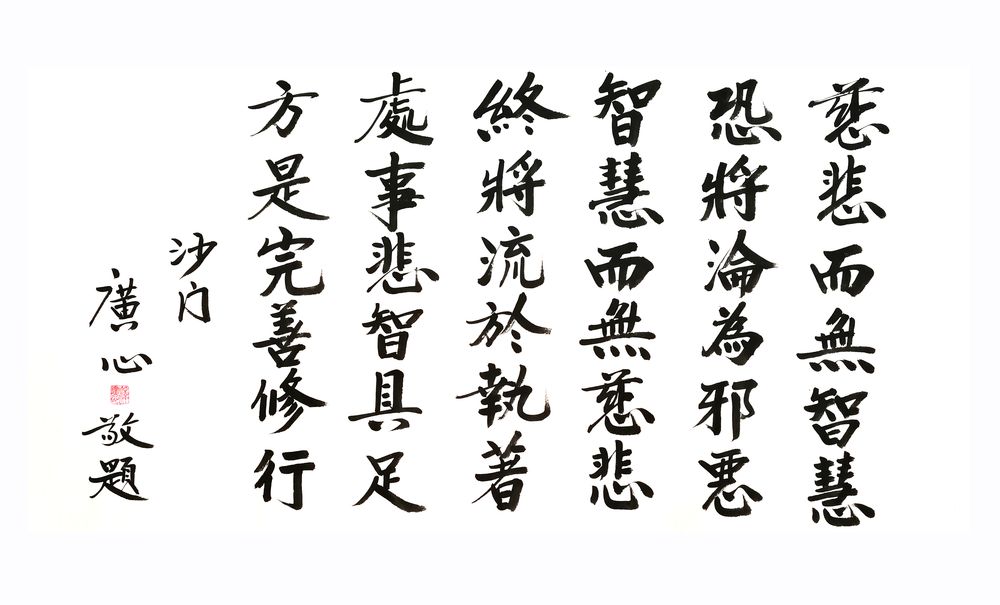 慈悲而無智慧
恐將淪為邪惡
智慧而無慈悲
終將流於執著
處事悲智具足
方是完善修行
沙门
廣心
敬題